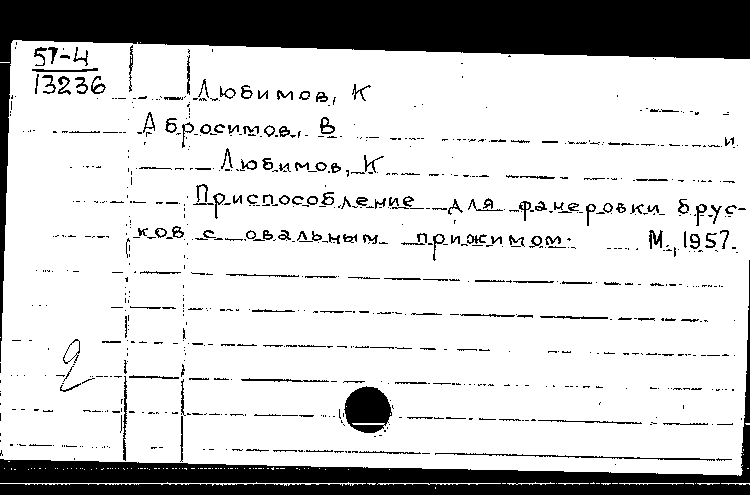 57-4
13236
Любимов, К
Абросимов, В и
Любимов, К
Приспособление для фанеровки брус-
ков с овальным прижимом. М., 1957.
2